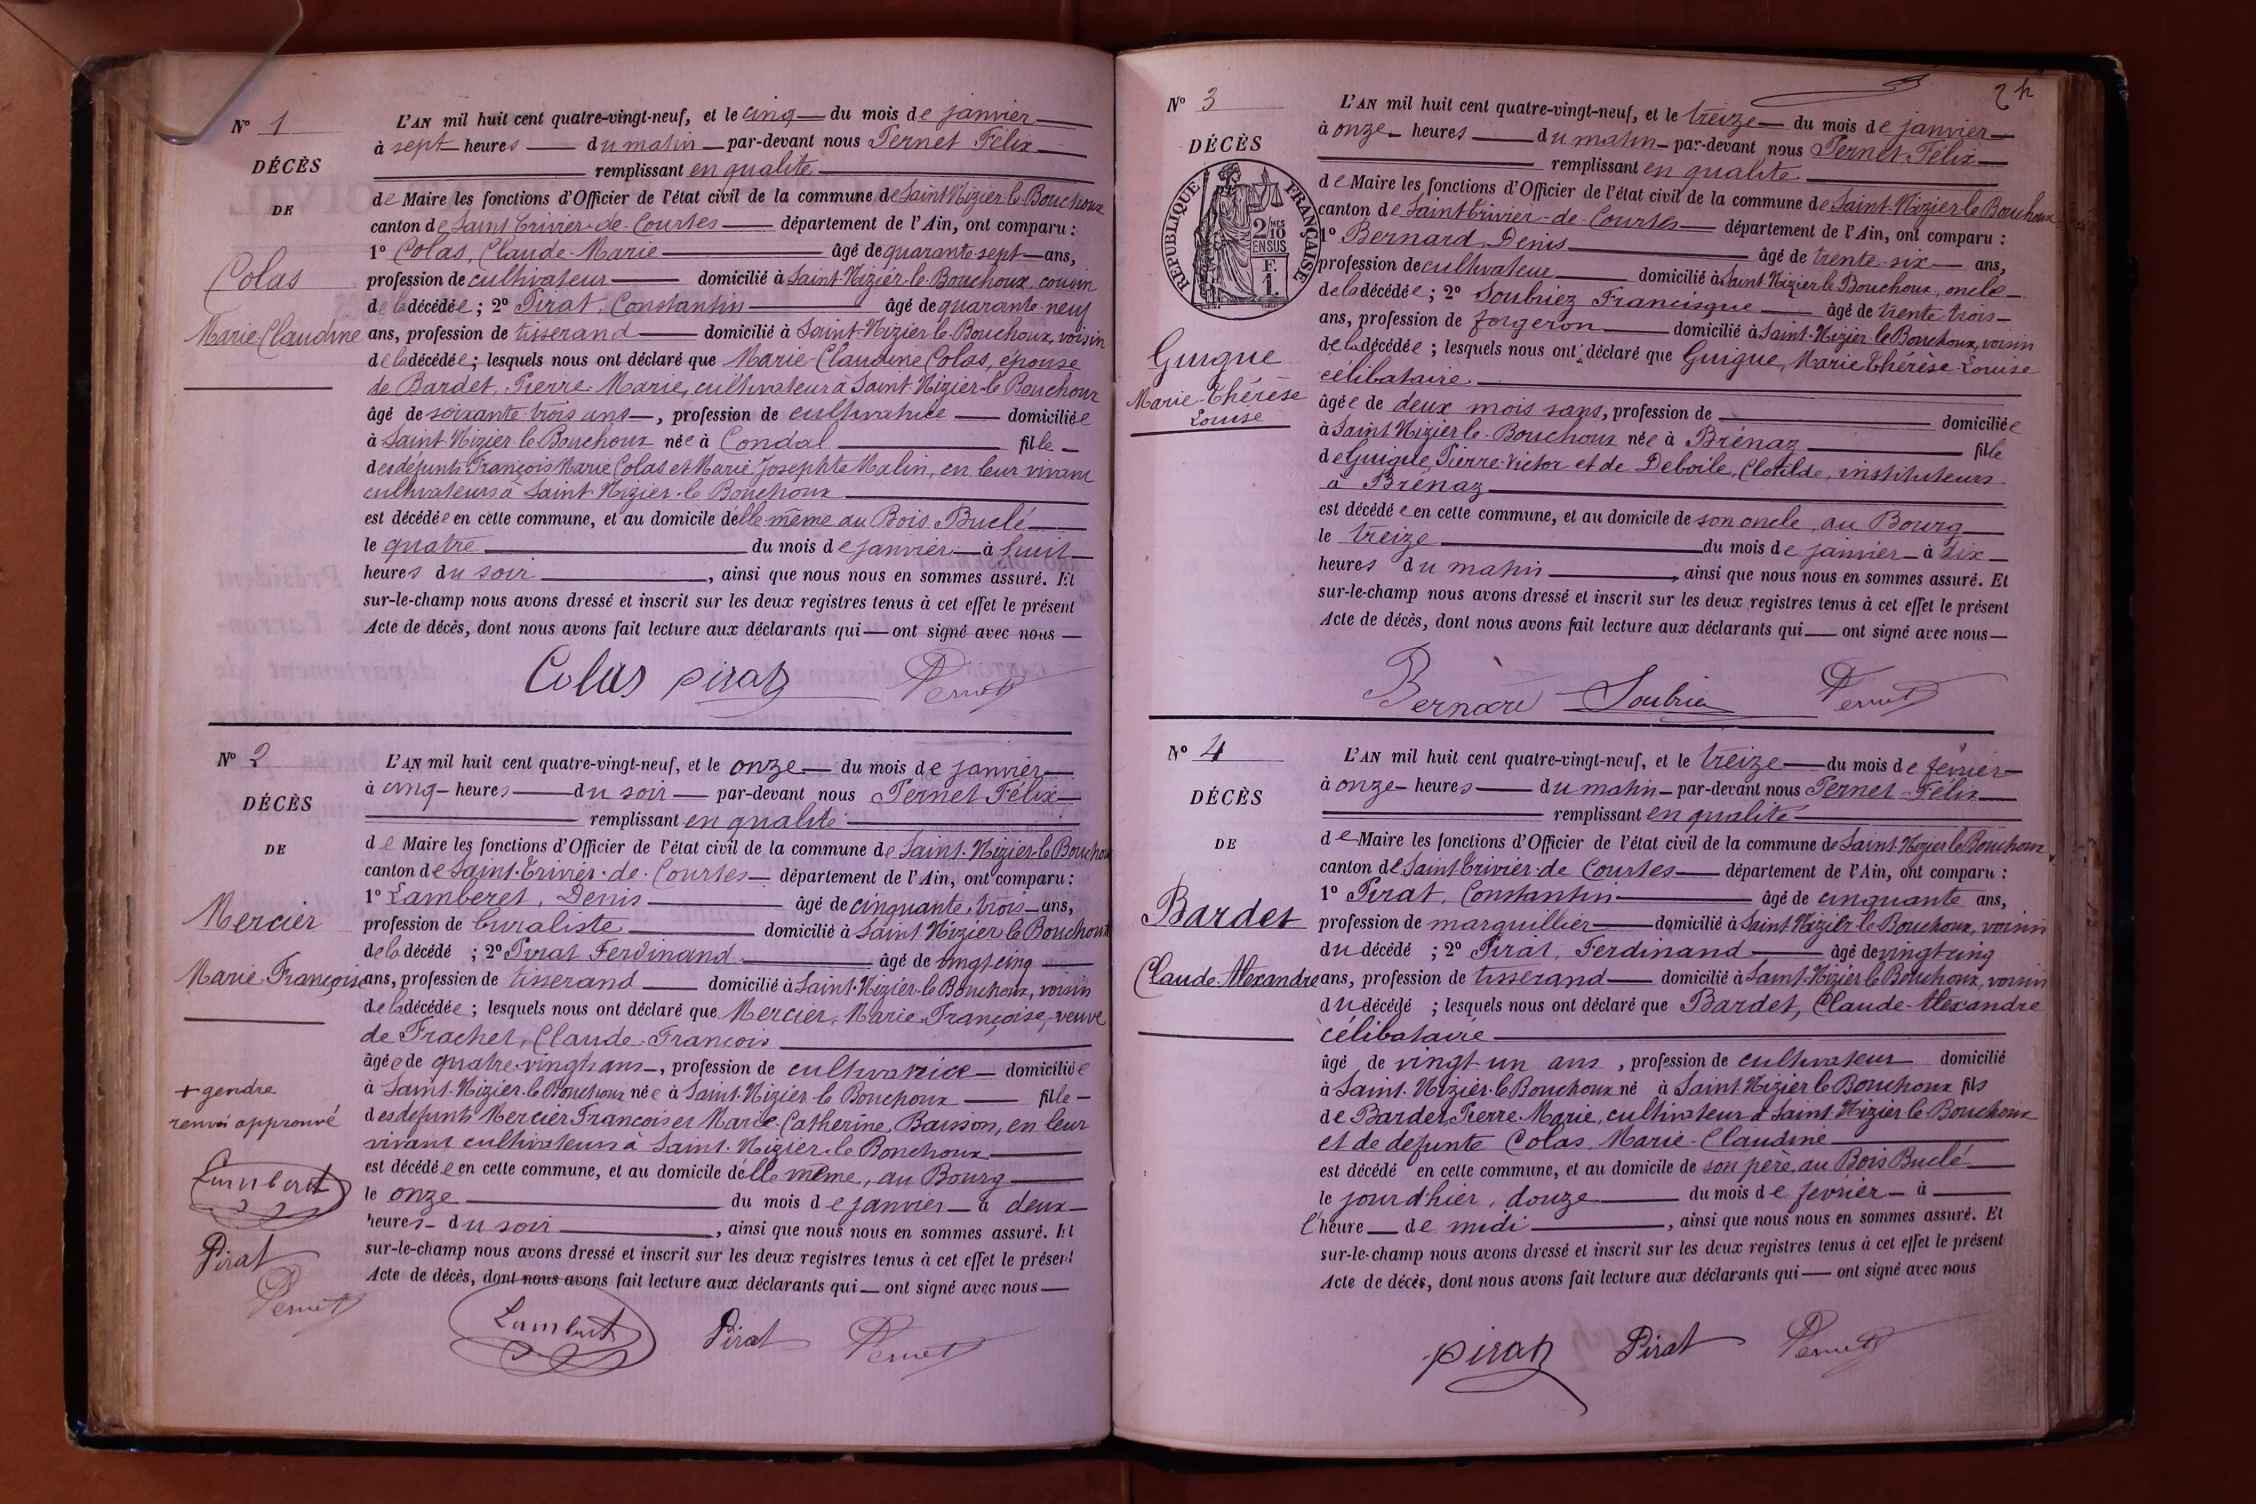 N° 1
DÉCÈS
DE
Colas
Marie Claudine
L'AN mil huit cent quatre-vingt-neuf, et le cinq du mois de janvier
à sept heures du matin par-devant nous Pernet Félix
remplissant en qualité
de Maire les fonctions d'Officier de l'état civil de la commune de Saint-Nizier-le-Bouchoux
canton de Saint-Trivier-de-Courtes département de l'Ain, ont comparu :
1° Colas, Claude-Marie âgé de quarante-sept ans,
profession de cultivateur domicilié à Saint-Nizier-le-Bouchoux, cousin
de la décédée ; 2° Pirat, Constantin âgé de quarante-neuf
ans, profession de tisserand domicilié à Saint-Nizier-le-Bouchoux, voisin
de la décédée ; lesquels nous ont déclaré que Marie-Claudine Colas, épouse
de Bardet, Pierre-Marie, cultivateur à Saint-Nizier-le-Bouchoux
âgé de soixante-trois ans, profession de cultivatrice domiciliée
à Saint-Nizier-le-Bouchoux née à Condal fille
des défunts François Marie Colas et Marie Josephte Malin, en leur vivant
cultivateurs à Saint-Nizier-le-Bouchoux
est décédée en cette commune, et au domicile d'elle-même au Bois Buclé
le quatre du mois de janvier à huit
heures du soir, ainsi que nous nous en sommes assuré. Et
sur-le-champ nous avons dressé et inscrit sur les deux registres tenus à cet effet le présent
Acte de décès, dont nous avons fait lecture aux déclarants qui ont signé avec nous
Colas Pirat Pernet
N° 2
DÉCÈS
DE
Mercier
Marie-Françoise
+ gendre
renvoi approuvé
Lamberet
Pirat
Pernet
L'AN mil huit cent quatre-vingt-neuf, et le onze du mois de janvier
à cinq heures du soir par-devant nous Pernet Félix
remplissant en qualité
de Maire les fonctions d'Officier de l'état civil de la commune de Saint-Nizier-le-Bouchoux
canton de Saint-Trivier-de-Courtes département de l'Ain, ont comparu :
1° Lamberet, Denis âgé de cinquante-trois ans,
profession de buraliste domicilié à Saint-Nizier le Bouchoux
de la décédé ; 2° Pirat Ferdinand âgé de vingt cinq
ans, profession de tisserand domicilié à Saint-Nizier-le-Bouchoux, voisin
de la décédée ; lesquels nous ont déclaré que Mercier, Marie-Françoise, veuve
de Frachet, Claude-François
âgée de quatre-vingts ans, profession de cultivatrice domiciliée
à Saint-Nizier-le-Bouchoux née à Saint-Nizier-le-Bouchoux fille
des défunts Mercier François et Marie-Catherine Buisson, en leur
vivant cultivateurs à Saint-Nizier-le-Bouchoux
est décédée en cette commune, et au domicile d'elle même, au Bourg
le onze du mois de janvier à deux
heures du soir, ainsi que nous nous en sommes assuré. Et
sur-le-champ nous avons dressé et inscrit sur les deux registres tenus à cet effet le présent
Acte de décès, dont nous avons fait lecture aux déclarants qui ont signé avec nous
Lamberet Pirat Pernet
N° 3
DÉCÈS
RÉPUBLIQUE FRANÇAISE
2/10
EN SUS
F.
1.
Guigue
Marie-Thérèse
Louise
L'AN mil huit cent quatre-vingt-neuf, et le treize du mois de janvier
à onze heures du matin par-devant nous Pernet Félix
remplissant en qualité
de Maire les fonctions d'Officier de l'état civil de la commune de Saint-Nizier le Bouchoux
canton de Saint-Trivier-de-Courtes département de l'Ain, ont comparu :
1° Bernard, Denis âgé de trente-six ans,
profession de cultivateur domicilié à Saint-Nizier le Bouchoux, oncle
de la décédée ; 2° Soubriez Francisque âgé de trente trois
ans, profession de forgeron domicilié à Saint-Nizier le Bouchoux, voisin
de la décédée ; lesquels nous ont déclaré que Guigue, Marie Thérèse Louise
célibataire
âgée de deux mois sans, profession de domiciliée
à Saint Nizier le Bouchoux née à Brénaz fille
de Guigue, Pierre-Victor et de Deboile, Clotilde, instituteurs
à Brénaz
est décédée en cette commune, et au domicile de son oncle, au Bourg
le treize du mois de janvier à six
heures du matin, ainsi que nous nous en sommes assuré. Et
sur-le-champ nous avons dressé et inscrit sur les deux registres tenus à cet effet le présent
Acte de décès, dont nous avons fait lecture aux déclarants qui ont signé avec nous
Bernard Soubrie Pernet
N° 4
DÉCÈS
DE
Bardet
Claude-Alexandre
L'AN mil huit cent quatre-vingt-neuf, et le treize du mois de février
à onze heures du matin par-devant nous Pernet Félix
remplissant en qualité
de Maire les fonctions d'Officier de l'état civil de la commune de Saint-Nizier le Bouchoux
canton de Saint-Trivier-de-Courtes département de l'Ain, ont comparu :
1° Pirat, Constantin âgé de cinquante ans,
profession de marguillier domicilié à Saint-Nizier-le-Bouchoux, voisin
du décédé ; 2° Pirat, Ferdinand âgé de vingt cinq
ans, profession de tisserand domicilié à Saint-Nizier le Bouchoux, voisin
du décédé ; lesquels nous ont déclaré que Bardet, Claude-Alexandre
célibataire
âgé de vingt-un ans, profession de cultivateur domicilié
à Saint-Nizier-le-Bouchoux né à Saint-Nizier le Bouchoux fils
de Bardet Pierre-Marie, cultivateur à Saint-Nizier le Bouchoux
et de défunte Colas Marie-Claudine
est décédé en cette commune, et au domicile de son père, au Bois Buclé
le jour d'hier, douze du mois de février à
l'heure de midi, ainsi que nous nous en sommes assuré. Et
sur-le-champ nous avons dressé et inscrit sur les deux registres tenus à cet effet le présent
Acte de décès, dont nous avons fait lecture aux déclarants qui ont signé avec nous
Pirat Pirat Pernet